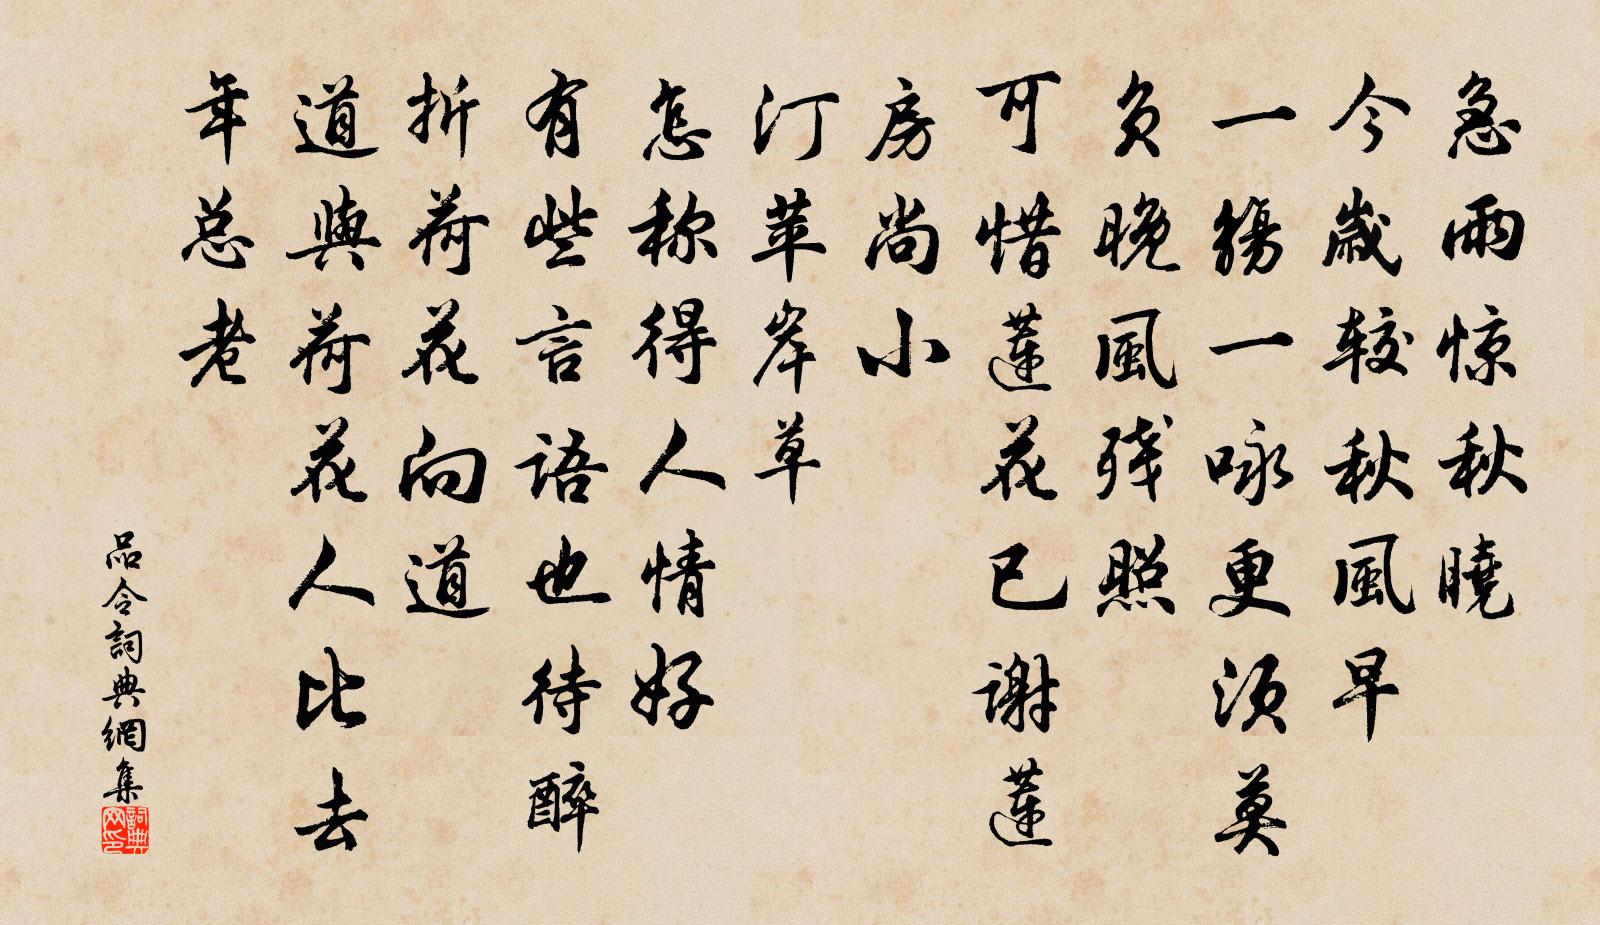 急雨惊秋曉
今歲较秋風早
一觞一咏更须莫
负晚風残照
可惜蓮花已谢蓮
房尚小
汀苹岸草
怎称得人情好
有些言语也待醉
折荷花向道
道與荷花人比去
年总老
品令詞典網集
詞典网印